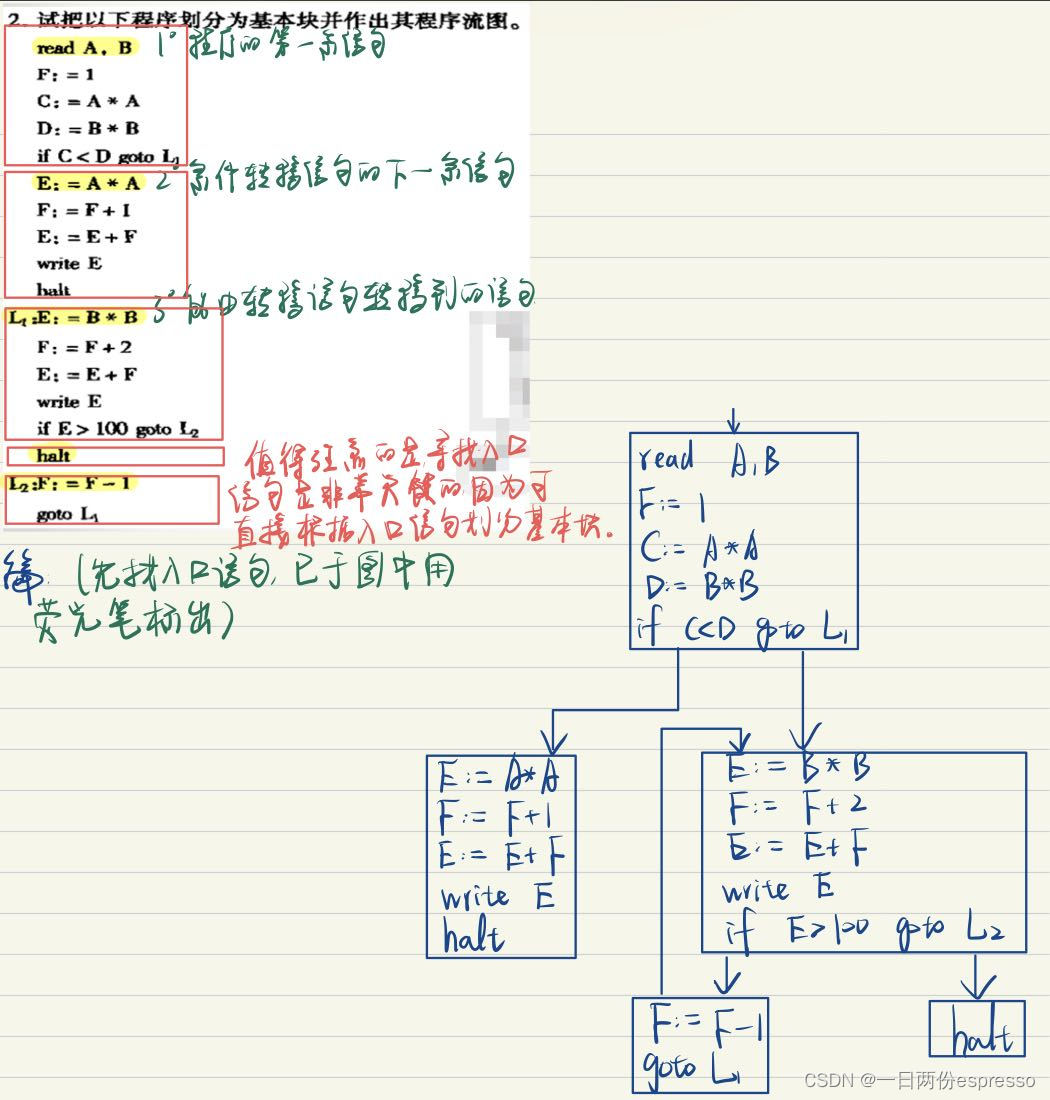 2. 试把以下程序划分为基本块并作出其程序流图。
read A, B
1° 程序的第一条语句
F: = 1
C: = A * A
D: = B * B
if C < D goto L₁
E: = A * A
2° 条件转移语句的下一条语句
F: = F + 1
E: = E + F
write E
halt
3° 能由转移语句转移到的语句
L₁:E: = B * B
F: = F + 2
E: = E + F
write E
if E > 100 goto L₂
halt
L₂:F: = F − 1
goto L₁
值得注意的是,寻找入口
语句是非常关键的因为可
直接根据入口语句划分基本块.
解: (先找入口语句,已于图中用
荧光笔标出)
read A,B
F:= 1
C:= A*A
D:= B*B
if C<D goto L₁
E:= A*A
F:= F+1
E:= E+F
write E
halt
E:= B*B
F:= F+2
E:= E+F
write E
if E>100 goto L₂
F:= F-1
goto L₁
halt
CSDN @一日两份espresso